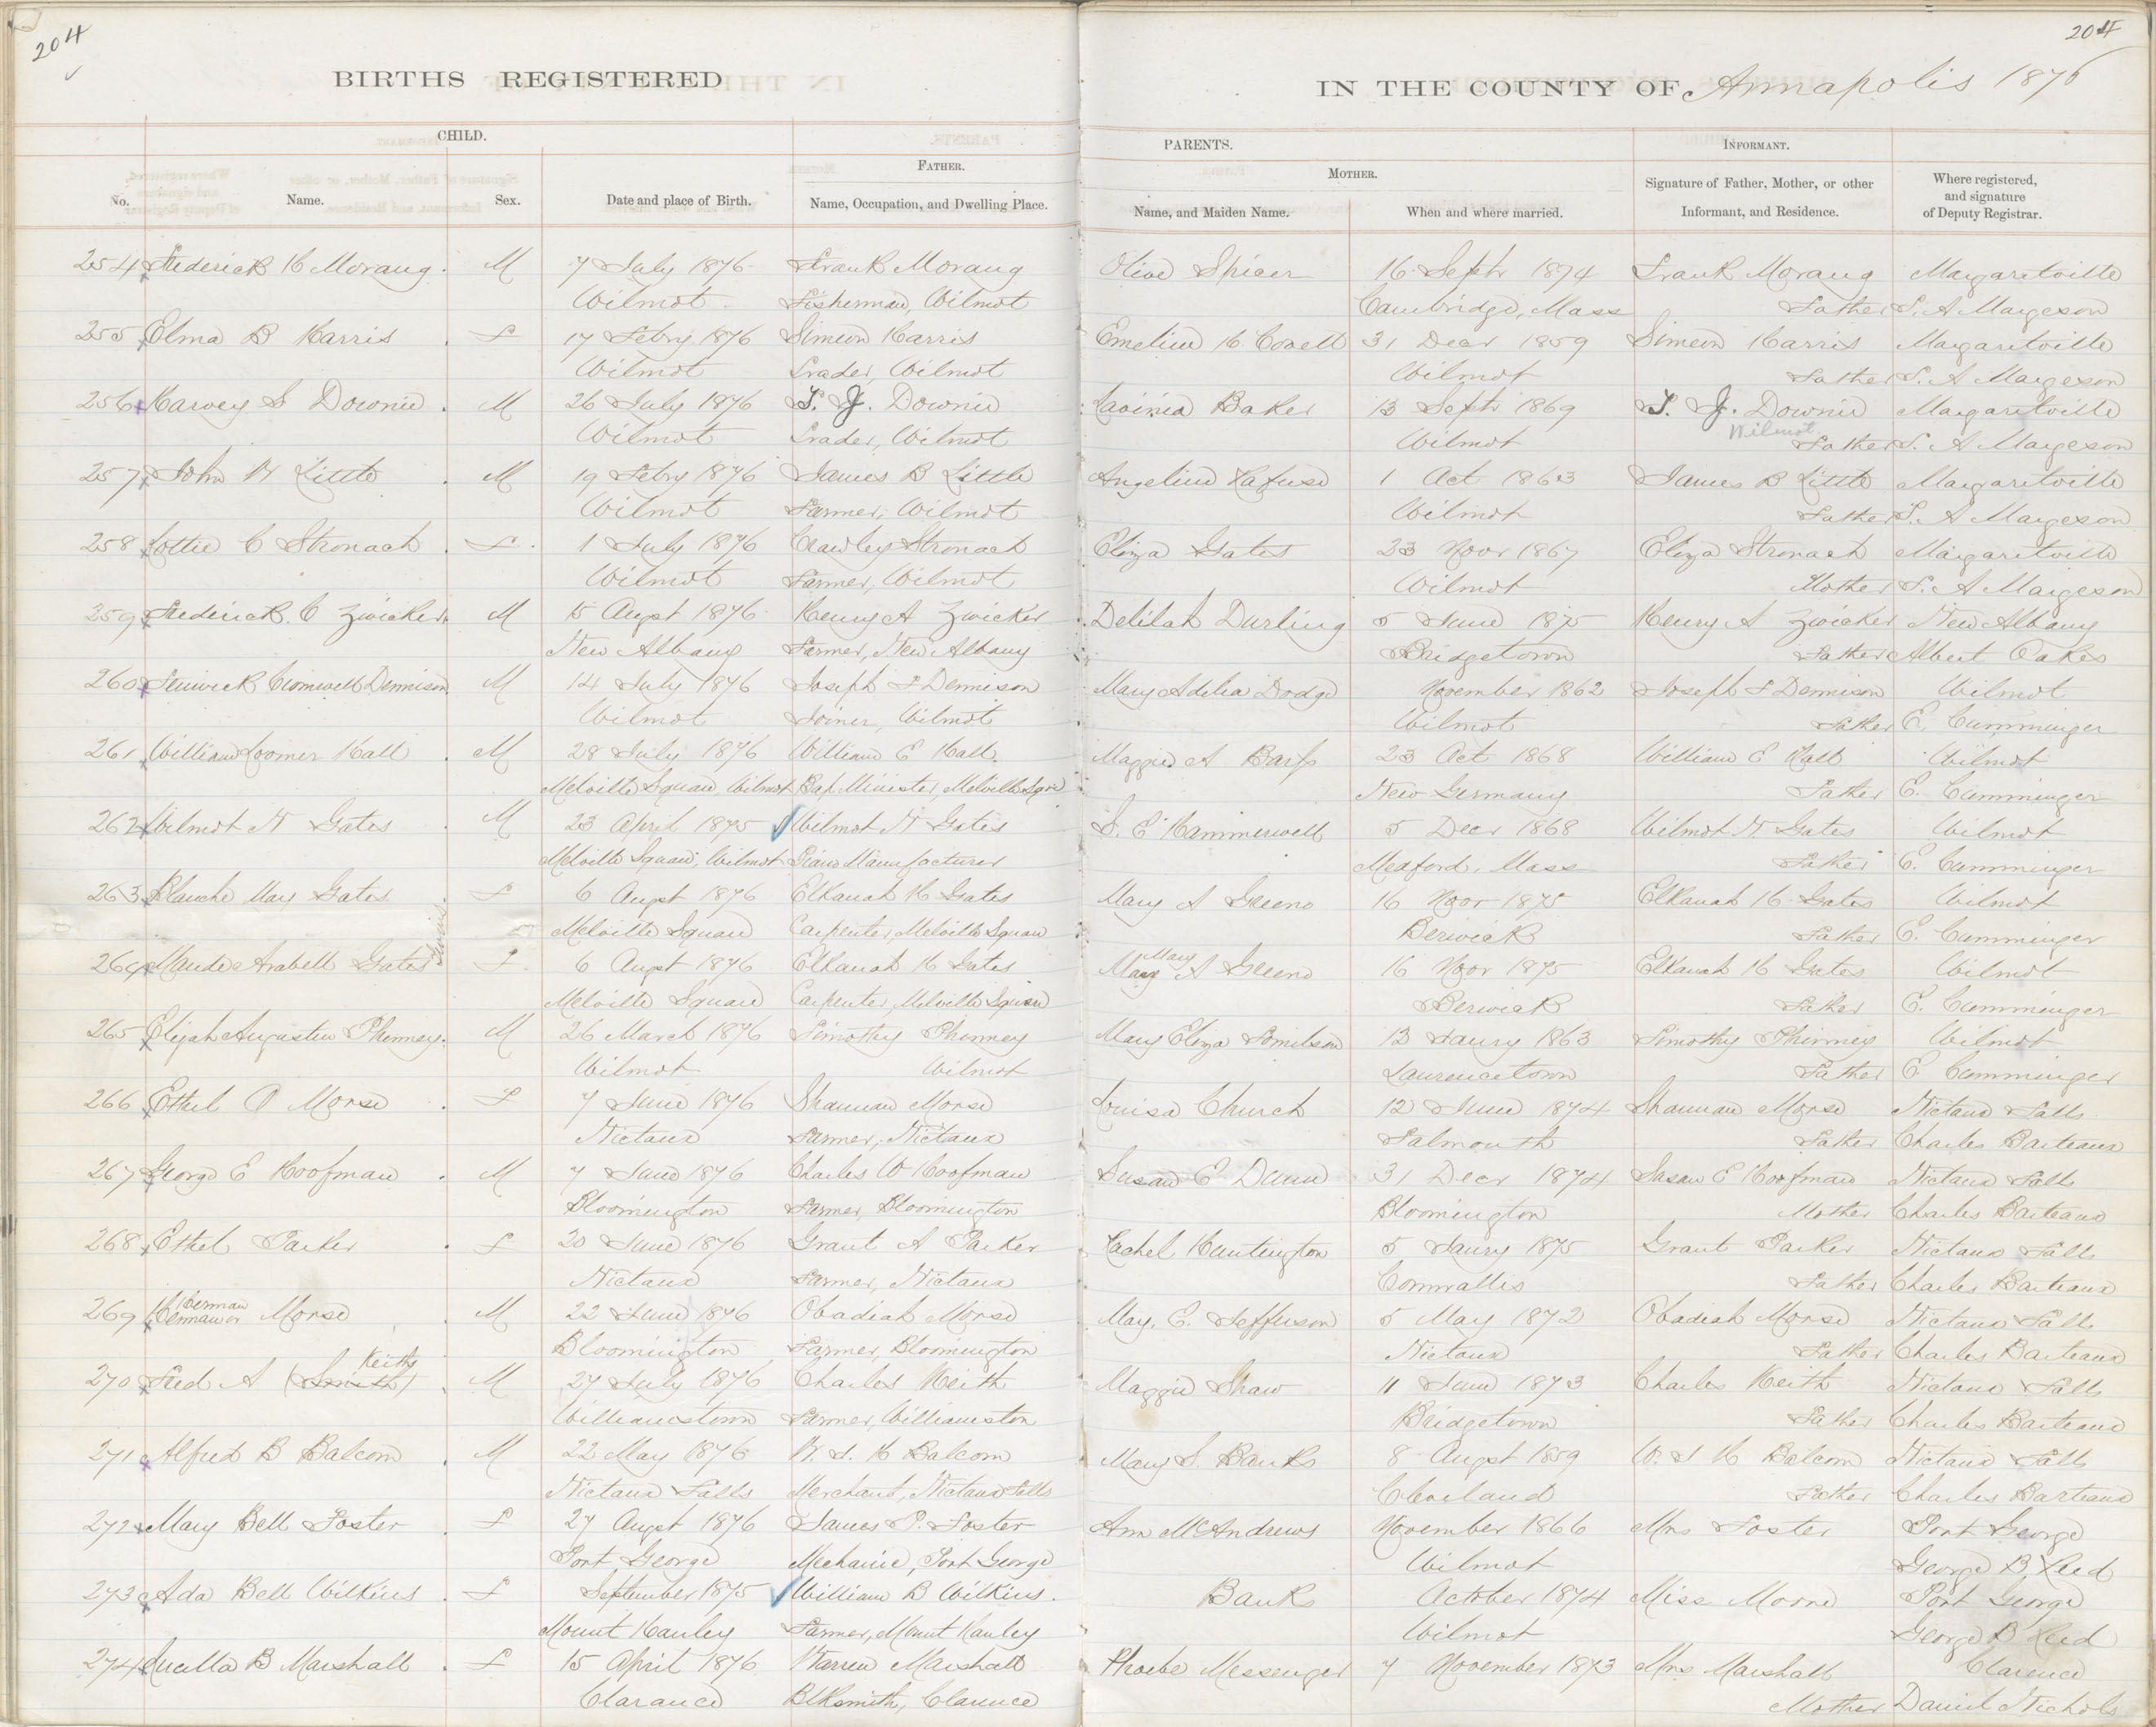 204
204
BIRTHS REGISTERED
IN THE COUNTY OF Annapolis 1876
CHILD.
PARENTS.
INFORMANT.
FATHER.
MOTHER.
No.
Name.
Sex.
Date and place of Birth.
Name, Occupation, and Dwelling Place.
Name, and Maiden Name.
When and where married.
Signature of Father, Mother, or other Informant, and Residence.
Where registered, and signature of Deputy Registrar.
254 Frederick H Morang M 7 July 1876 Frank Morang Olive Spicer 16 Septr 1874 Frank Morang Margaretville
Wilmot Fisherman, Wilmot Cambridge, Mass Father S. A Margeson
255 Elma B Harris F 17 Febry 1876 Simeon Harris Emeline H Covell 31 Decr 1859 Simeon Harris Margaretville
Wilmot Trader, Wilmot Wilmot Father S. A Margeson
256 Harvey S Downie M 26 July 1876 T. J. Downie Lavinia Baker 13 Septr 1869 T. J. Downie Margaretville
Wilmot Trader, Wilmot Wilmot Wilmot Father S. A Margeson
257 John H Little M 19 Febry 1876 James B Little Angeline Lafuse 1 Oct 1863 James B Little Margaretville
Wilmot Farmer, Wilmot Wilmot Father S. A Margeson
258 Lottie C Stronach F 1 July 1876 Crawley Stronach Eliza Gates 23 Novr 1867 Eliza Stronach Margaretville
Wilmot Farmer, Wilmot Wilmot Mother S. A Margeson
259 Frederick C Zwicker M 15 Augst 1876 Henry A Zwicker Delilah Durling 5 June 1875 Henry A Zwicker New Albany
New Albany Farmer, New Albany Bridgetown Father Albert Oakes
260 Fenwick Cromwell Dennison M 14 July 1876 Joseph F Dennison Mary Adelia Dodge November 1862 Joseph F Dennison Wilmot
Wilmot Joiner, Wilmot Wilmot Father E. Cumminger
261 William Loomer Hall M 28 July 1876 William E Hall Maggie A Barss 23 Oct 1868 William E Hall Wilmot
Melville Square, Wilmot Bap. Minister, Melville Sqre New Germany Father E. Cumminger
262 Wilmot N Gates M 23 April 1875 Wilmot N Gates S. E Hammerwell 5 Decr 1868 Wilmot N Gates Wilmot
Melville Square, Wilmot Piano Manufacturer Medford, Mass Father E. Cumminger
263 Blanche May Gates F 6 Augst 1876 Elkanah H Gates Mary A Greeno 16 Novr 1875 Elkanah H Gates Wilmot
Twins
Melville Square Carpenter, Melville Square Berwick Father E. Cumminger
264 Maude Arabell Gates F 6 Augst 1876 Elkanah H Gates Mary Mary A Greeno 16 Novr 1875 Elkanah H Gates Wilmot
Melville Square Carpenter, Melville Square Berwick Father E. Cumminger
265 Elijah Augustin Phinney M 26 March 1876 Timothy Phinney Mary Eliza Tomilson 13 Jaury 1863 Timothy Phinney Wilmot
Wilmot Wilmot Laurencetown Father E. Cumminger
266 Ethel O Morse F 7 June 1876 Shannan Morse Louisa Church 12 June 1874 Shannan Morse Nictaux Falls
Nictaux Farmer, Nictaux Falmouth Father Charles Barteaux
267 George E Hoofman M 7 June 1876 Charles W Hoofman Susan E Dunn 31 Decr 1874 Susan E Hoofman Nictaux Falls
Bloomington Farmer, Bloomington Bloomington Mother Charles Barteaux
268 Ethel Parker F 20 June 1876 Grant A Parker Rachel Huntington 5 Jaury 1875 Grant Parker Nictaux Falls
Nictaux Farmer, Nictaux Cornwallis Father Charles Barteaux
269 Herman Morse M 22 June 1876 Obadiah Morse May. E. Jefferson 5 May 1872 Obadiah Morse Nictaux Falls
Bloomington Farmer, Bloomington Nictaux Father Charles Barteaux
270 Fred A (Smith) Keith M 27 July 1876 Charles Keith Maggie Shaw 11 June 1873 Charles Keith Nictaux Falls
Williamstown Farmer, Williamston Bridgetown Father Charles Barteaux
271 Alfred B Balcom M 22 May 1876 W. I. H Balcom Mary S. Banks 8 Augst 1859 W. I H Balcom Nictaux Falls
Nictaux Falls Merchant, Nictaux Falls Cleveland Father Charles Barteaux
272 Mary Bell Foster F 27 Augst 1876 James P. Foster Ann McAndrews November 1866 Mrs Foster Port George
Port George Mechanic, Port George Wilmot George B Reed
273 Ada Bell Wilkins F September 1875 William B Wilkins Banks October 1874 Miss Moore Port George
Mount Hanley Farmer, Mount Hanley Wilmot George B Reed
274 Lucella B Marshall F 15 April 1876 Warren Marshall Phoebe Messenger 7 November 1873 Mrs Marshall Clarence
Clarance Blksmith, Clarence Mother Daniel Nichols